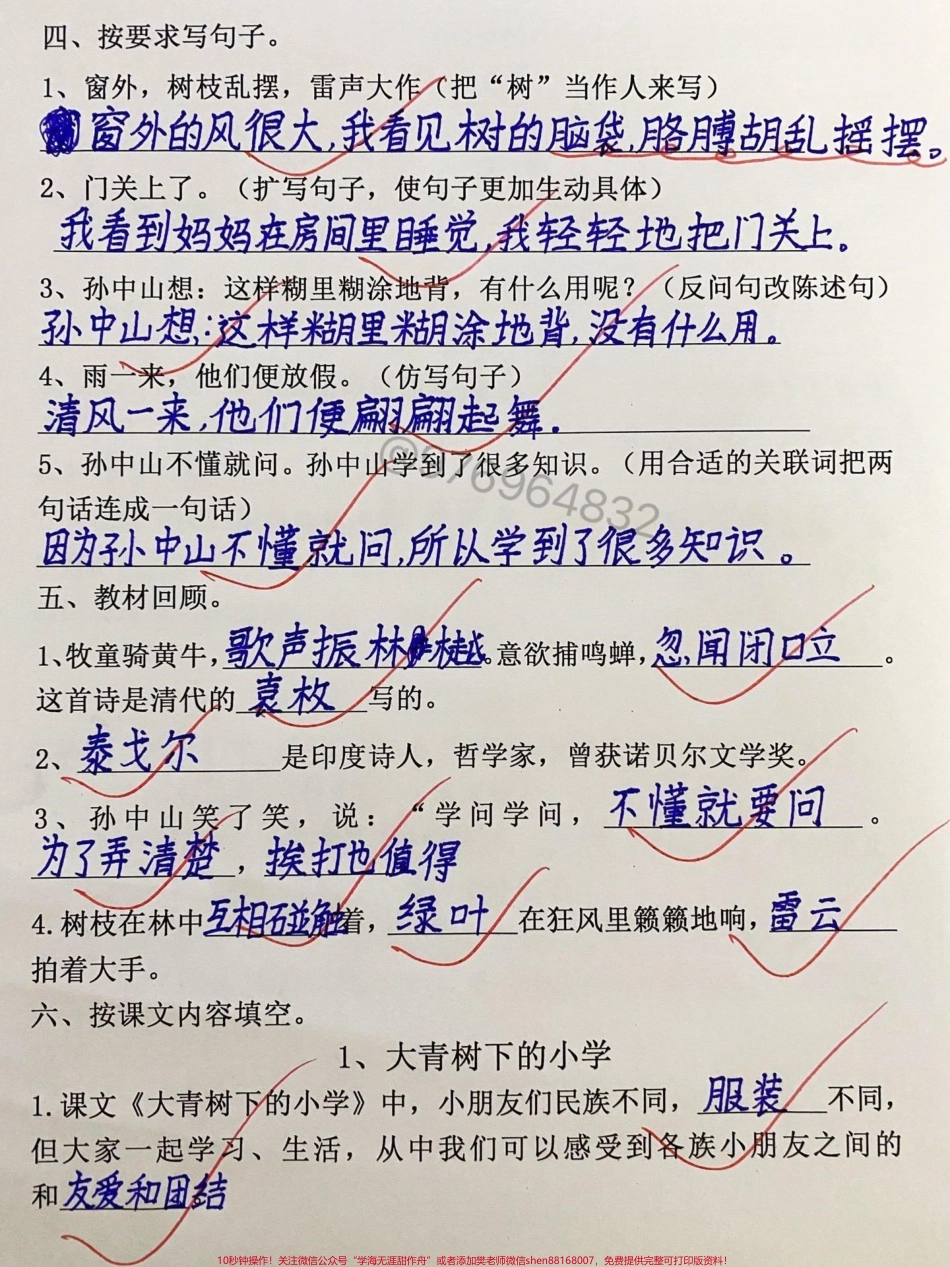 四、按要求写句子。
1、窗外，树枝乱摆，雷声大作（把“树”当作人来写）
窗外的风很大，我看见树的脑袋，胳膊胡乱摇摆。
2、门关上了。（扩写句子，使句子更加生动具体）
我看到妈妈在房间里睡觉，我轻轻地把门关上。
3、孙中山想：这样糊里糊涂地背，有什么用呢？（反问句改陈述句）
孙中山想：这样糊里糊涂地背，没有什么用。
4、雨一来，他们便放假。（仿写句子）
清风一来，他们便翩翩起舞.
@576964832
5、孙中山不懂就问。孙中山学到了很多知识。（用合适的关联词把两
句话连成一句话）
因为孙中山不懂就问，所以学到了很多知识。
五、教材回顾。
1、牧童骑黄牛，歌声振林樾。意欲捕鸣蝉，忽闻闭口立。
这首诗是清代的袁枚写的。
2、泰戈尔是印度诗人，哲学家，曾获诺贝尔文学奖。
3、孙中山笑了笑，说：“学问学问，不懂就要问。
为了弄清楚，挨打也值得
4.树枝在林中互相碰触着，绿叶在狂风里簌簌地响，雷云
拍着大手。
六、按课文内容填空。
1、大青树下的小学
1.课文《大青树下的小学》中，小朋友们民族不同，服装不同，
但大家一起学习、生活，从中我们可以感受到各族小朋友之间的
和友爱和团结
10秒钟操作！关注微信公众号“学海无涯甜作舟”或者添加樊老师微信shen88168007，免费提供完整可打印版资料！